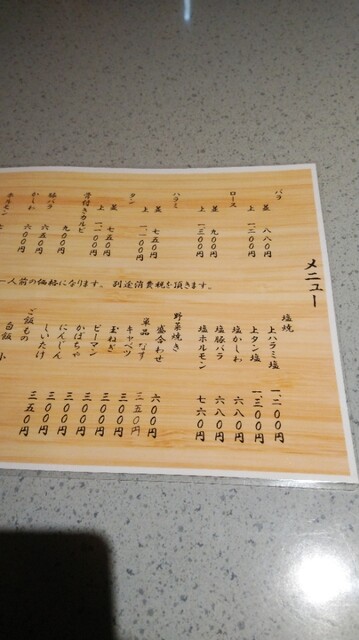 メニュー
バラ
並 八八〇円
上 一、二〇〇円
ロース
並 九〇〇円
上 一、三〇〇円
ハラミ
並 七五〇円
上 一、一〇〇円
タン
並 七五〇円
上 一、一〇〇円
骨付きカルビ
豚バラ 九〇〇円
かしわ 六五〇円
ホルモン 六〇〇円
一人前の価格になります。別途消費税を頂きます。
塩焼
上ハラミ塩 一、二〇〇円
上タン塩 一、三〇〇円
塩かしわ 六八〇円
塩豚バラ 六八〇円
塩ホルモン 七六〇円
野菜焼き
盛合わせ 六〇〇円
単品 なす 三五〇円
キャベツ 三〇〇円
玉ねぎ 三〇〇円
ピーマン 三〇〇円
かぼちゃ 三〇〇円
にんじん 三〇〇円
しいたけ 三五〇円
ご飯もの
白飯 小